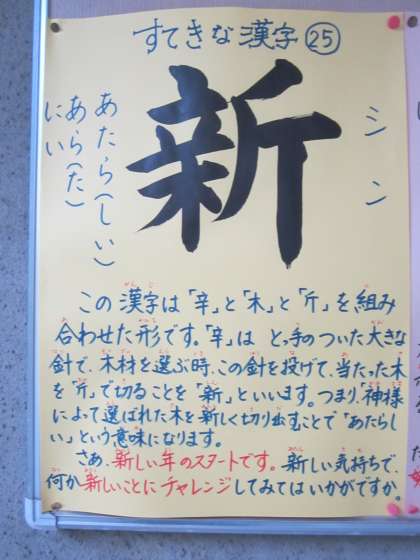 すてきな漢字㉕
新
シン
あたら(しい)
あら(た)
にい
この漢字は「辛」と「木」と「斤」を組み
合わせた形です。「辛」は とっ手のついた大きな
針で、木材を選ぶ時、この針を投げて、当たった木
を「斤」で切ることを「新」といいます。つまり、「神様
によって選ばれた木を新しく切り出すことで「あたらし
い」という意味になります。
さあ、新しい年のスタートです。新しい気持ちで、
何か新しいことにチャレンジしてみてはいかがですか。